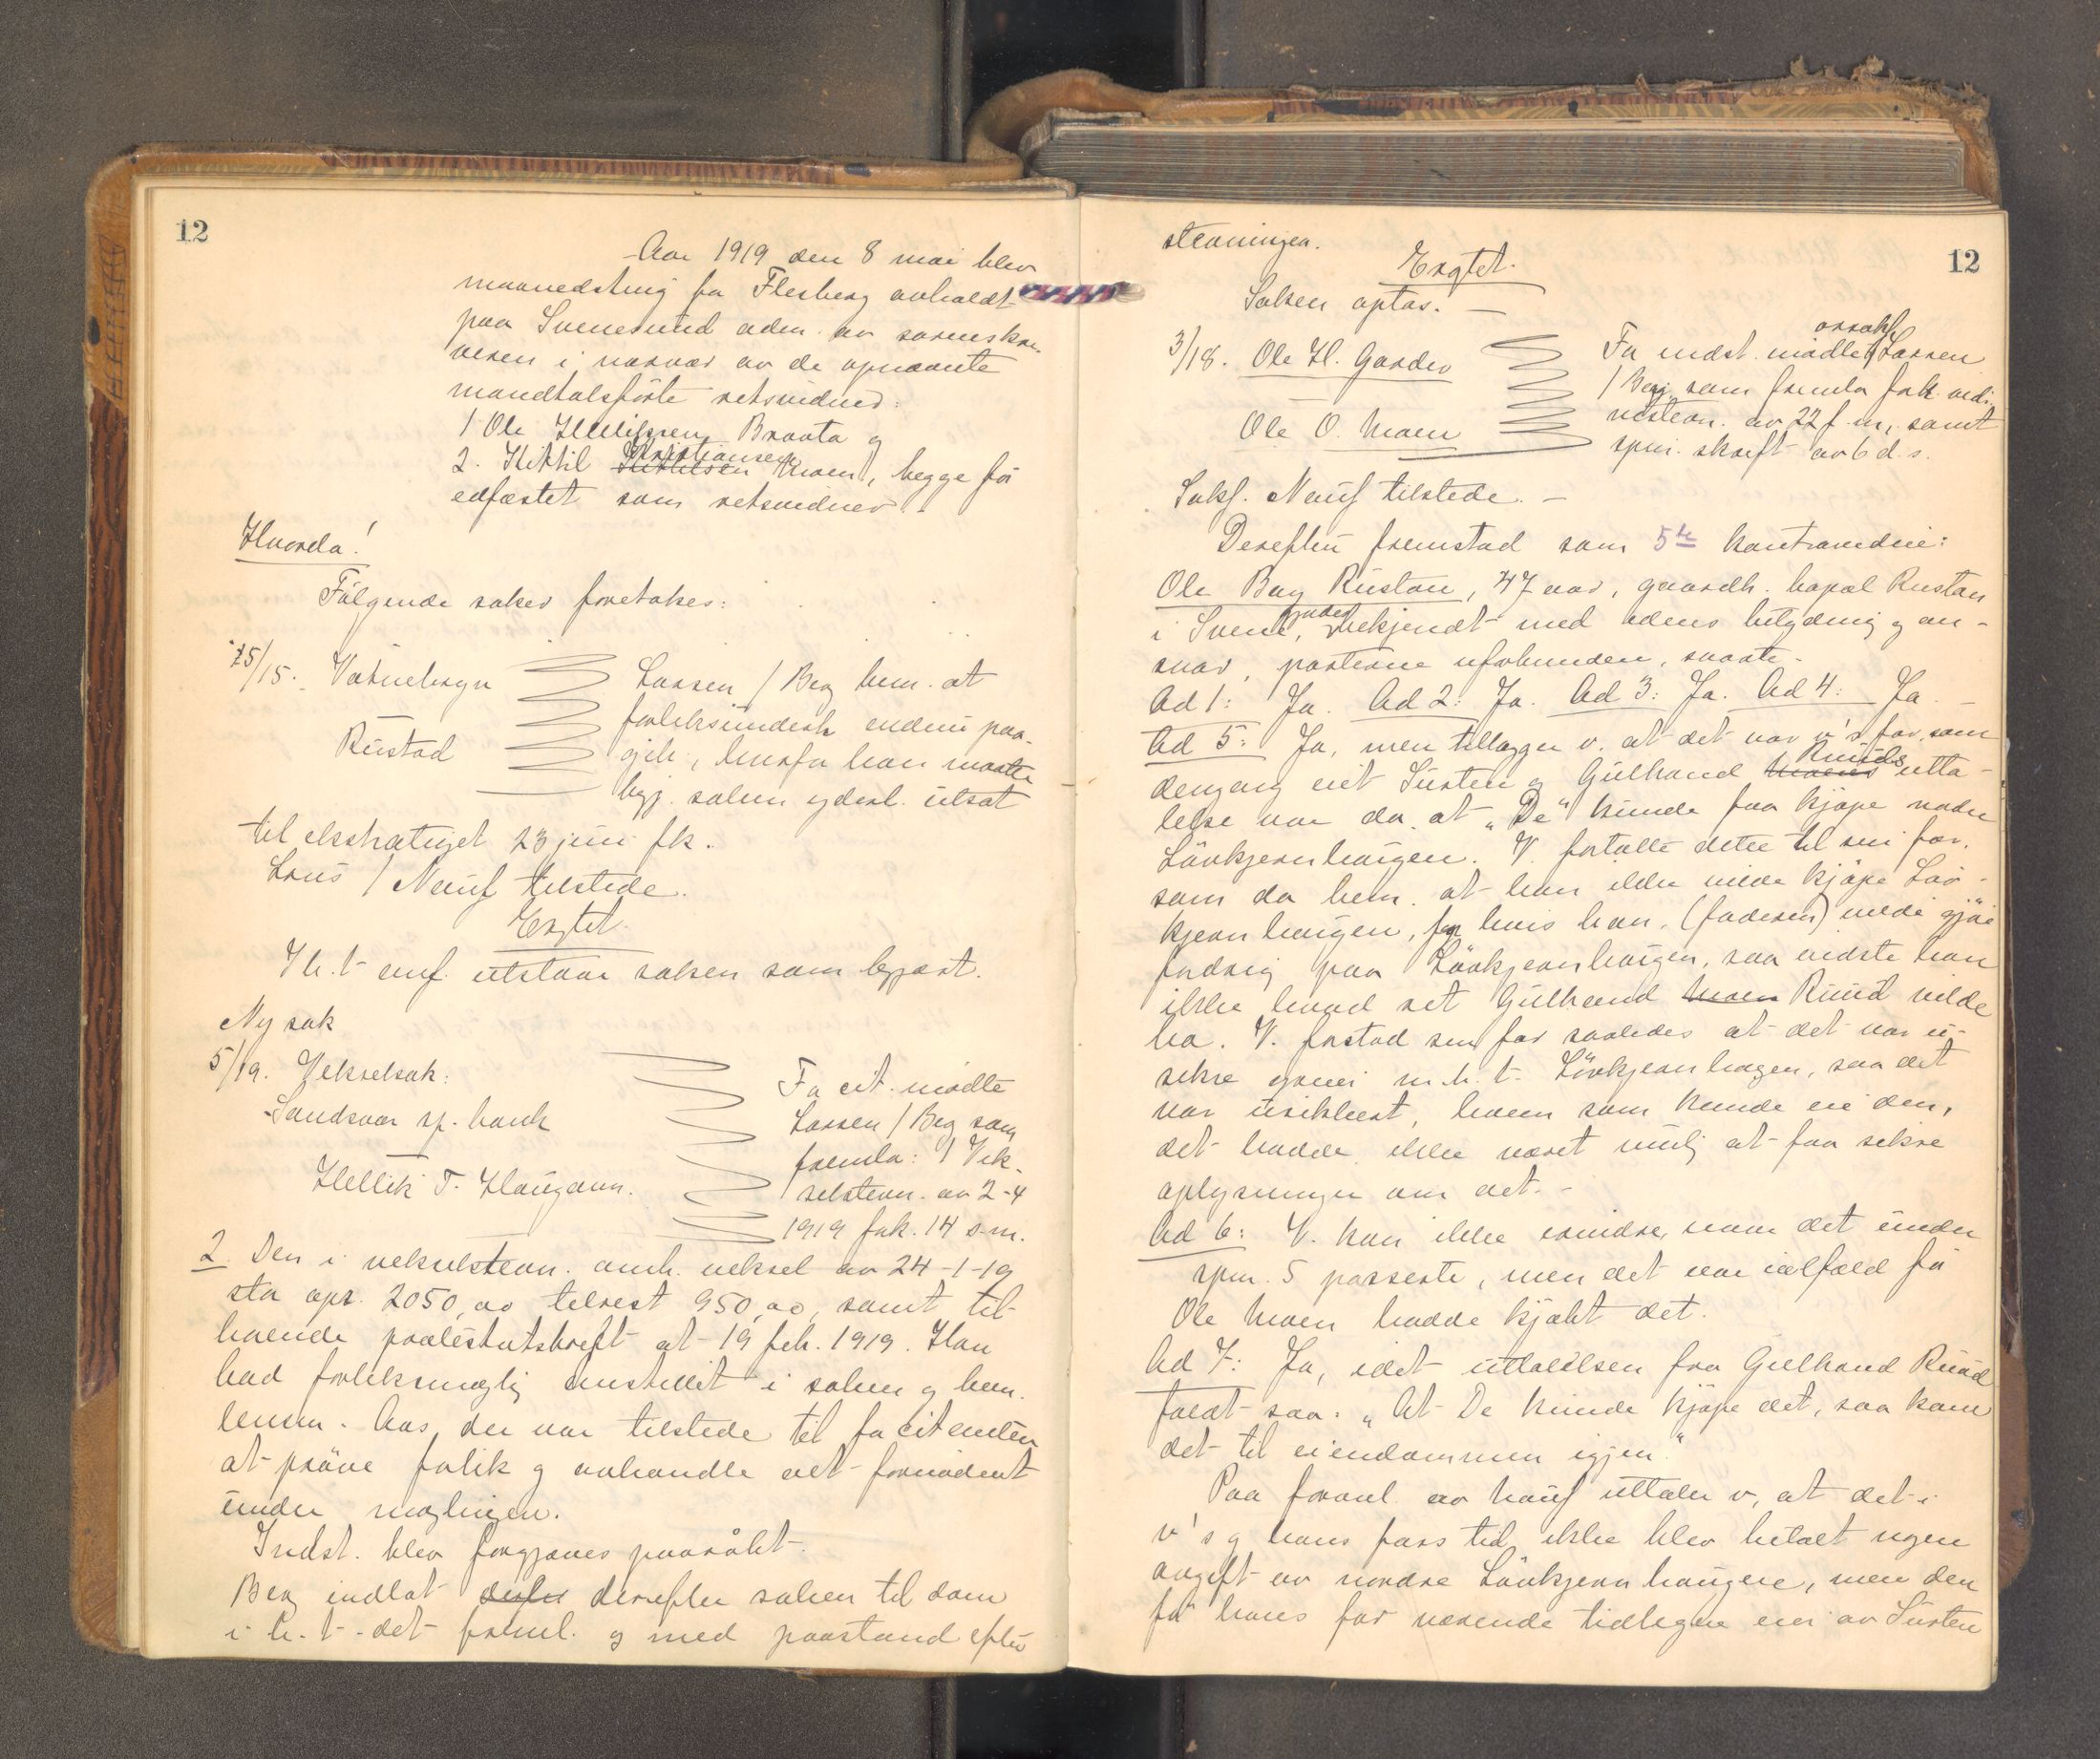 12
Aar 1919 den 8 mai blev
maanedsting for Flesberg avholdt
paa Svenesund adm. av sorenskri-
veren i nærvær av de opnævnte
mandtalsførte retsvidner:
1 Ole Helliksen Braata og
2. Kittil Kristiansen Moen, begge før
edfæstet som retsvidner. -
Hvorda!
Følgende saker foretokes:
15/15. Vatnebryn
Rustad
Larsen / Bey bem. at
forliksundersk endnu paa-
gik, hvorfor han maatte
begj. saken yderl. utsat
til ekstratinget 23 juni fk.
Lous / Neuf tilstede.
Eragtet.
I h. t. enf. utstaar saken som begjært.
Ny sak
5/19. Vekselsak:
Sandsvær sp. bank
Hellik T. Haugann.
For cit. mødte
Larsen / Beg som
fremla: 1 Vek-
selstevn. av 2-4
1919 fok. 14 s.m.
2. Den i vekselstevn. omh. veksel av 24-1-19
sta opr. 2050,00 tilrest 950,00, samt til-
hørende protestutskrift at 19 feb. 1919. Han
bad forliksmægling indstillet i saken og bem.
lensm. Aas, der var tilstede til for citanten
at prøve forlik og avhandle det fornødent
under mæglingen.
Indst. blev forgjæves paaråbt.
Beg indlot derefter saken til dom
i h. t. det freml. og med paastand efter
12
stevningen.
Eragtet.
Saken optas. -
3/18. Ole H. Gardev
Ole O. Moen
For indst. mødte orsakf. Larsen
/ Beg som fremla fok. vid-
nestevn. av 22 f. m., samt
spm. skrift av 6 d. s.
Sakf. Neuf tilstede. -
Derefter fremstod som 5te kontravidne:
Ole Bay Rustan, 47 aar, gaardb. bopæl Rustan
i Svene, gjordes bekjendt med edens betydning og an-
svar, parterne uforbunden, svarte.
Ad 1: Ja. Ad 2: Ja. Ad 3: Ja. Ad 4: Ja -
Ad 5: Ja, men tillægger v. at det var v's far, som
dengang eiet Surten og Gulbrand Ruuds utta-
lelse var da at „De" kunde faa kjøpe nordre
Løvkjernhaugen. V. fortalte dette til sin far,
som da bem. at han ikke vilde kjøpe Løv-
kjernhaugen, for hvis han, (faderen) vilde gjøre
fordring paa Løvkjernhaugen, saa vidste han
ikke hvad ret Gulbrand Ruud vilde
ha. V. forstod sin far saaledes at det var u-
sikre greier m. h. t. Løvkjernhagen, saa det
var usikkert, hvem som kunde eie den,
det hadde ikke været mulig at faa sikre
oplysninger om det. -
Ad 6: V. kan ikke erindre, naar det under
spm. 5 passerte, men det var ialfald før
Ole Moen hadde kjøbt det.
Ad 7: Ja, idet uttalelsen fra Gulbrand Ruud
faldt saa: „At De kunde kjøpe det, saa kom
det til eiendommen igjen."
Paa foranl. av Neuf uttaler v, at det i
v's og hans fars tid ikke blev betalt nogen
avgift av nordre Løvkjernhaugene, men den
før hans far værende tidligere eier av Surten